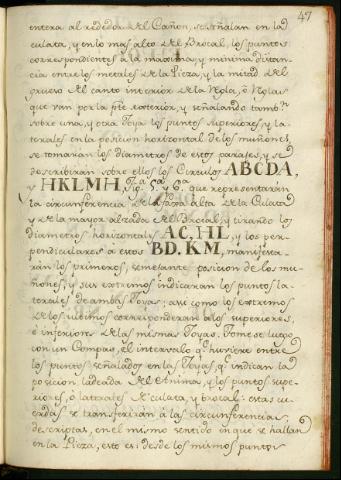 47
entera al rededor del Cañon, se señalan en la
culata, y en lo mas alto del Brocal, los puntos
correspondientes à la maxima, y minima distan-
cia entre los metales de la Pieza, y la mitad del
grueso del canto interior de la Regla, ô Reglas
que van por la pte exterior, y señalando tambn
sobre una, y otra Joya los puntos superiores, y la-
terales en la posicion horizontal de los muñones,
se tomaràn los diametros de estos parajes, y se
describiràn sobre ellos los Circulos ABCDA,
y HKLMH, Figa 5a y 6a que representaràn
la circunferencia de la faxa alta de la Culata
y de la mayor alzada del Brocal, y tirando los
diametros horizontales AC, HL, y los per-
pendiculares à estos BD. KM, manifesta-
ràn los primeros, semejante posicion de los mu-
ñones, y sus extremos indicaràn los puntos la-
terales de ambas Joyas; asi como los extremos
de los ultimos corresponderàn à los superiores,
ô inferiores de las mismas Joyas. Tomese luego
con un Compas, el intervalo qe huviere entre
los puntos señalados en las Joyas, qe indican la
posicion ladeada del Anima, y los puntos supe-
riores, ô laterales de culata, y brocal: estas cu-
erdas se transferiràn à las circunferencias
descriptas, en el mismo sentido en que se hallan
en la Pieza, esto es: desde los mismos puntos